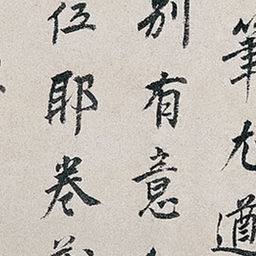 筆尤遒
别有意
伍耶卷